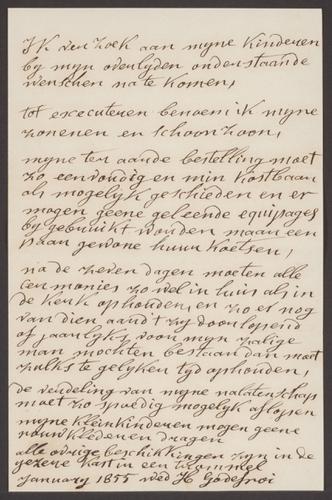 Ik verzoek aan myne kinderen
by myn overlyden onderstaande
wenschen na te komen,
tot executeren benoem ik myne
zoonen en schoonzoon,
myne ter aarde bestelling moet
zo eenvoudig en min kostbaar
als mogelyk geschieden en er
mogen geene geleende equipages
by gebruikt worden maar een
paar gewone huur koetsen,
na de zeven dagen moeten alle
ceremonies zo wel in huis als in
de kerk ophouden, en zo er nog
van dien aard 't zy doorlopend
of jaarlyks voor myn zalige
man mochten bestaan dan moet
zulks te gelyken tyd ophouden,
de verdeling van myne nalatenschap
moet zo spoedig mogelyk aflopen
myne kleinkinderen mogen geene
rouwklederen dragen
alle overige beschikkingen zyn in de
yzere kast in een trommel
January 1855 wed H Godefroi